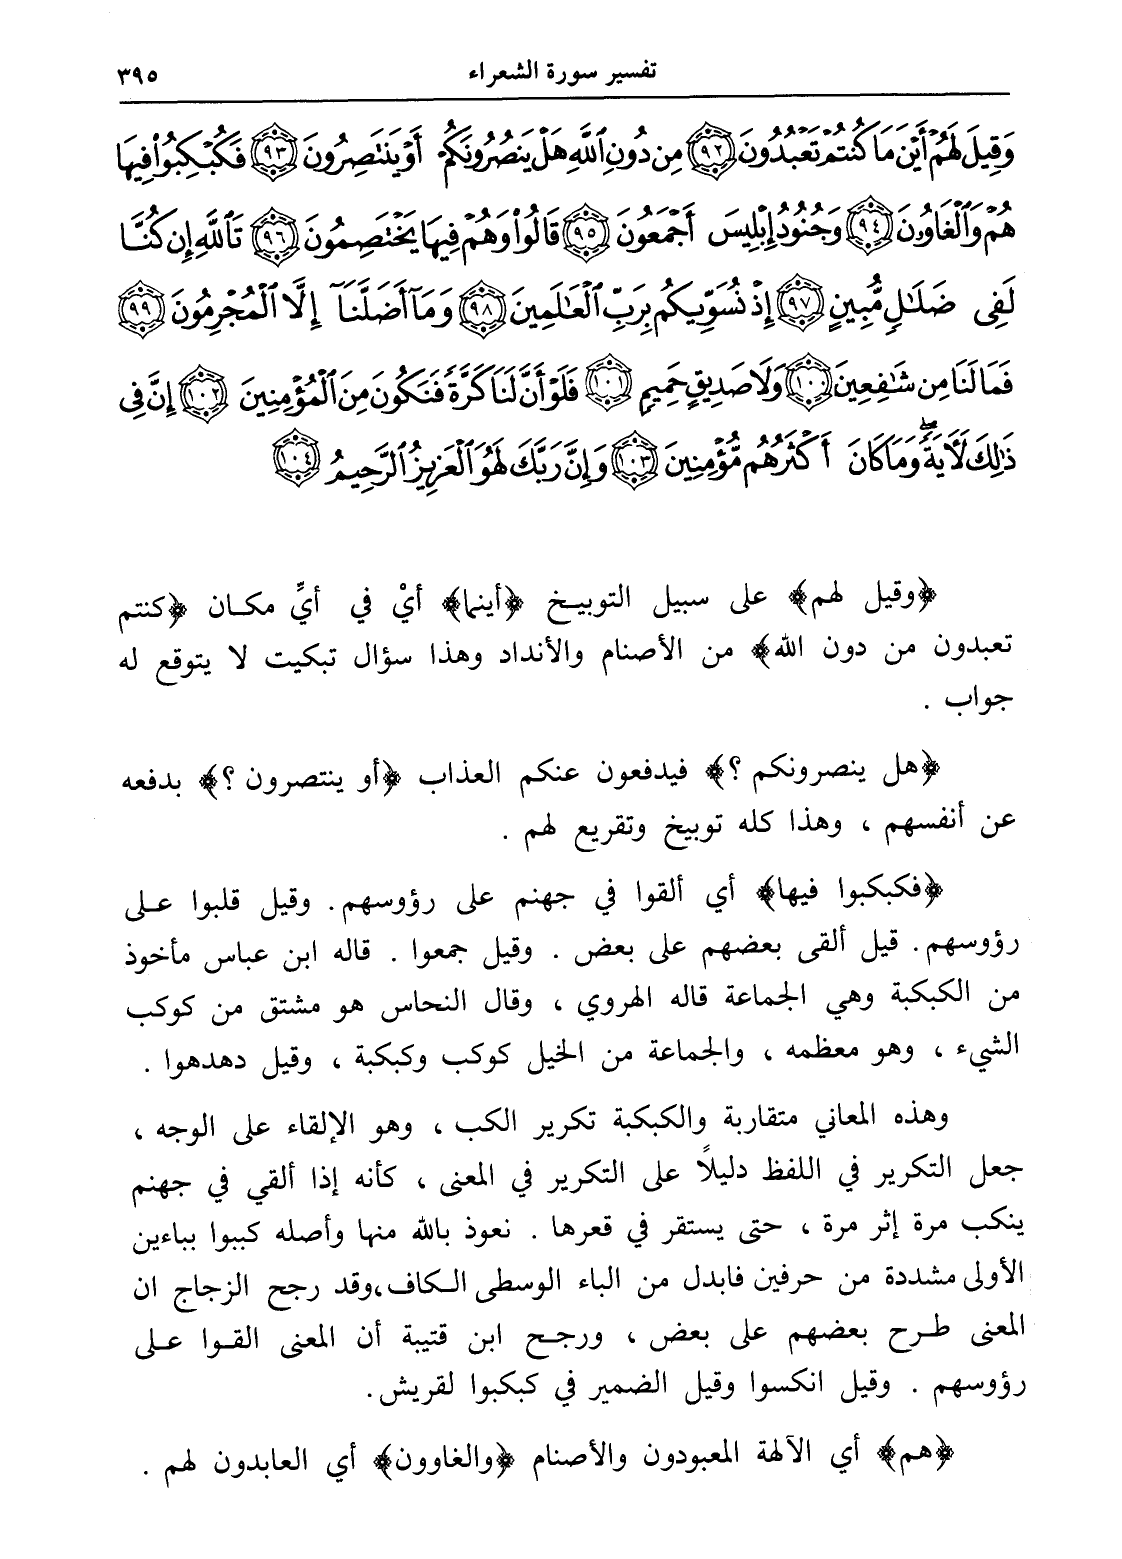 تفسير سورة الشعراء ٣٩٥
وَقِيلَ لَهُمْ أَيْنَ مَا كُنتُمْ تَعْبُدُونَ ٩٢ مِن دُونِ ٱللَّهِ هَلْ يَنصُرُونَكُمْ أَوْ يَنتَصِرُونَ ٩٣ فَكُبْكِبُوا۟ فِيهَا
هُمْ وَٱلْغَاوُۥنَ ٩٤ وَجُنُودُ إِبْلِيسَ أَجْمَعُونَ ٩٥ قَالُوا۟ وَهُمْ فِيهَا يَخْتَصِمُونَ ٩٦ تَٱللَّهِ إِن كُنَّا
لَفِى ضَلَٰلٍ مُّبِينٍ ٩٧ إِذْ نُسَوِّيكُم بِرَبِّ ٱلْعَٰلَمِينَ ٩٨ وَمَآ أَضَلَّنَآ إِلَّا ٱلْمُجْرِمُونَ ٩٩
فَمَا لَنَا مِن شَٰفِعِينَ ١٠٠ وَلَا صَدِيقٍ حَمِيمٍ ١٠١ فَلَوْ أَنَّ لَنَا كَرَّةً فَنَكُونَ مِنَ ٱلْمُؤْمِنِينَ ١٠٢ إِنَّ فِى
ذَٰلِكَ لَءَايَةً ۖ وَمَا كَانَ أَكْثَرُهُم مُّؤْمِنِينَ ١٠٣ وَإِنَّ رَبَّكَ لَهُوَ ٱلْعَزِيزُ ٱلرَّحِيمُ ١٠٤
﴿وقيل لهم﴾ على سبيل التوبيخ ﴿أينما﴾ أيْ في أيِّ مكان ﴿كنتم
تعبدون من دون الله﴾ من الأصنام والأنداد وهذا سؤال تبكيت لا يتوقع له
جواب .
﴿هل ينصرونكم ؟﴾ فيدفعون عنكم العذاب ﴿أو ينتصرون ؟﴾ بدفعه
عن أنفسهم ، وهذا كله توبيخ وتقريع لهم .
﴿فكبكبوا فيها﴾ أي ألقوا في جهنم على رؤوسهم. وقيل قلبوا على
رؤوسهم. قيل ألقى بعضهم على بعض . وقيل جمعوا . قاله ابن عباس مأخوذ
من الكبكبة وهي الجماعة قاله الهروي ، وقال النحاس هو مشتق من كوكب
الشيء ، وهو معظمه ، والجماعة من الخيل كوكب وكبكبة ، وقيل دهدهوا .
وهذه المعاني متقاربة والكبكبة تكرير الكب ، وهو الإلقاء على الوجه ،
جعل التكرير في اللفظ دليلاً على التكرير في المعنى ، كأنه إذا ألقي في جهنم
ينكب مرة إثر مرة ، حتى يستقر في قعرها . نعوذ بالله منها وأصله كببوا بباءين
الأولى مشددة من حرفين فابدل من الباء الوسطى الكاف،وقد رجح الزجاج ان
المعنى طرح بعضهم على بعض ، ورجح ابن قتيبة أن المعنى القوا على
رؤوسهم . وقيل انكسوا وقيل الضمير في كبكبوا لقريش.
﴿هم﴾ أي الآلهة المعبودون والأصنام ﴿والغاوون﴾ أي العابدون لهم .